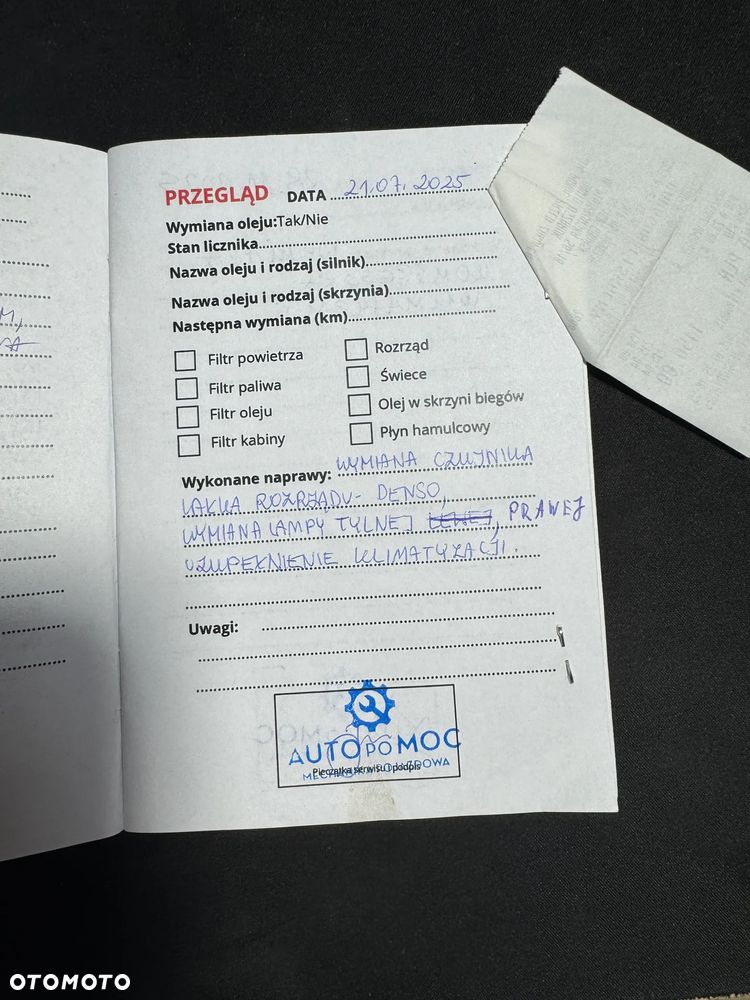 PRZEGLĄD DATA 21.07.2025
Wymiana oleju:Tak/Nie
Stan licznika
Nazwa oleju i rodzaj (silnik)
Nazwa oleju i rodzaj (skrzynia)
Następna wymiana (km)
Filtr powietrza
Filtr paliwa
Filtr oleju
Filtr kabiny
Rozrząd
Świece
Olej w skrzyni biegów
Płyn hamulcowy
Wykonane naprawy: WYMIANA CZUJNIKA
WAŁKA ROZRZĄDU - DENSO,
WYMIANA LAMPY TYLNEJ LEWEJ, PRAWEJ
UZUPEŁNIENIE KLIMATYZACJI.
Uwagi:
AUTO PO MOC
MECHANIKA POJAZDOWA
Pieczątka serwisu i podpis
OTOMOTO